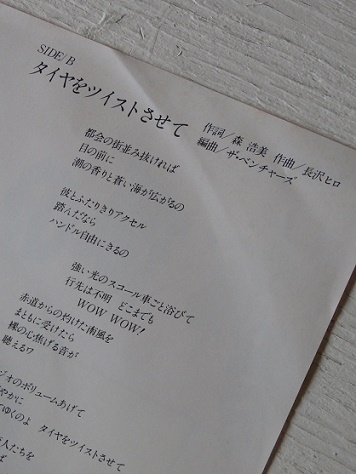 SIDE/B
タイヤをツイストさせて
作詞/森 浩美 作曲/長沢ヒロ
編曲/ザ・ベンチャーズ
都会の街並み抜ければ
目の前に
潮の香りと蒼い海が広がるの
彼とふたりきりアクセル
踏んだなら
ハンドル自由にきるの
強い光のスコール車ごと浴びて
行先は不明 どこまでも
WOW WOW!
赤道からの灼けた南風を
まともに受けたら
裸の心焦げる音が
聴えるワ
ジオのボリュームあげて
やかに
てゆくのよ タイヤをツイストさせて
人たちを